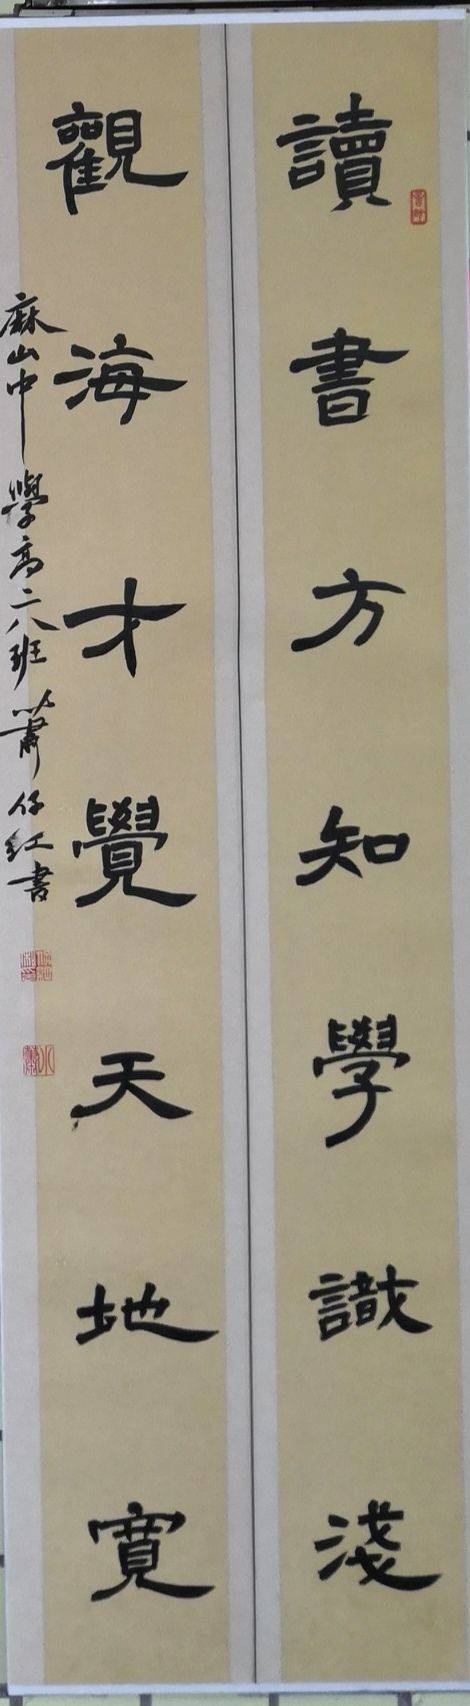 讀書方知學識淺
觀海才覺天地寬
麻山中學高二八班蕭仔紅書